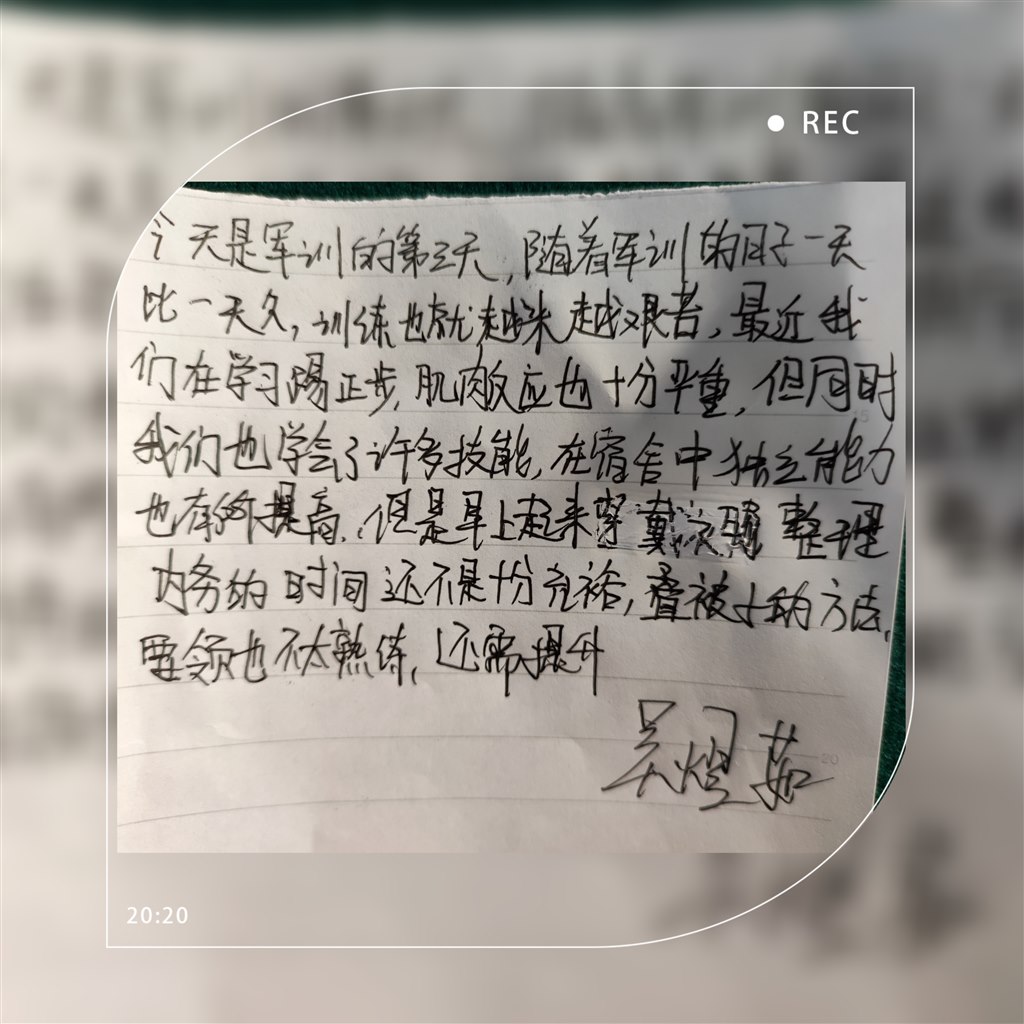 REC
今天是军训的第三天,随着军训的日子一天
比一天久,训练也就越来越艰苦,最近我
们在学习踢正步,肌肉反应也十分严重,但同时
我们也学会了许多技能,在宿舍中独立能力
也有所提高,但是早上起来穿戴 整理
内务的时间还不是十分充裕,叠被子的方法,
要领也不太熟练,还需提升
吴煜茹
20:20